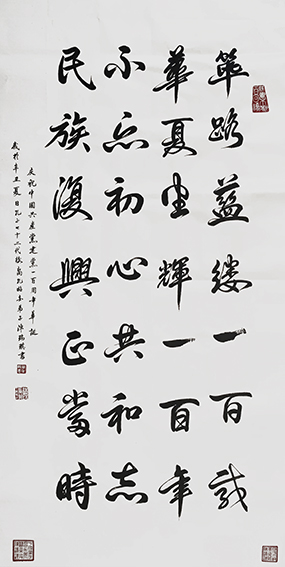 篳路藍縷一百載
華夏生輝一百年
不忘初心共和志
民族復興正當時
庆祝中國共產黨建黨一百周年華誕
歲於辛丑夏日孔子七十二代孫 弟子 書